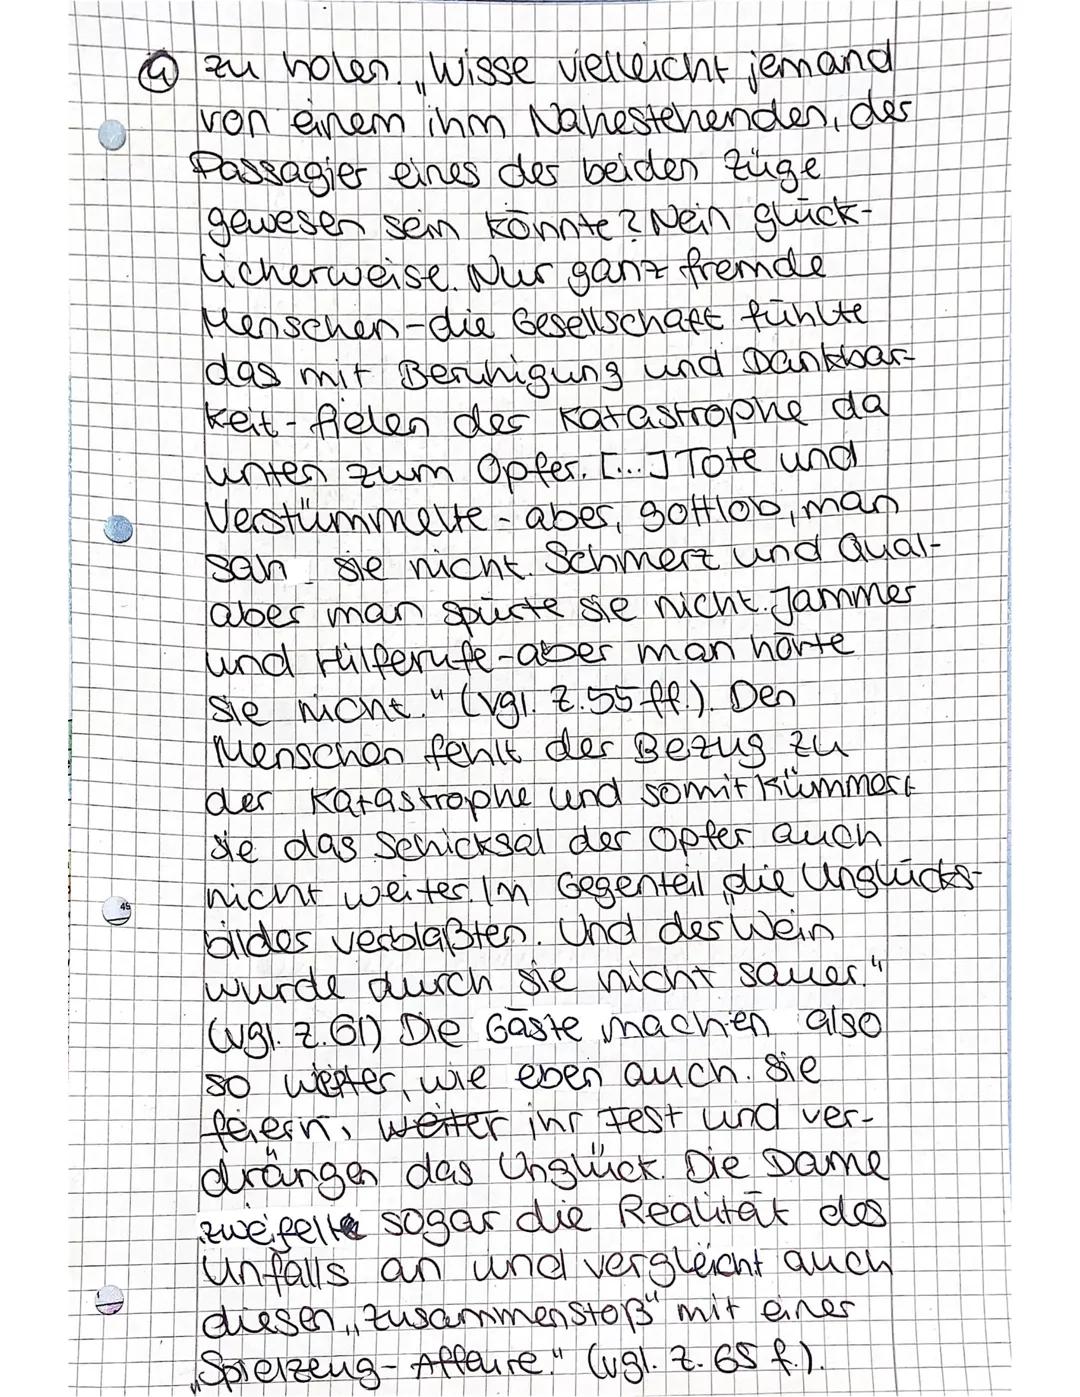 ④ zu holen. „Wisse vielleicht jemand
von einem ihm Nahestehenden, der
Passagier eines der beiden Züge
gewesen sein könnte? Nein glück-
licherweise. Nur ganz fremde
Menschen-die Gesellschaft fühlte
das mit Beruhigung und Dankbar-
keit-fielen der Katastrophe da
unten zum Opfer. [...] Tote und
Verstümmelte - aber, gottlob, man
sah sie nicht. Schmerz und Qual-
aber man spürte sie nicht. Jammer
und Hilferufe-aber man hörte
sie nicht." (vgl. Z.55 ff.). Den
Menschen fehlt der Bezug zu
der Katastrophe und somit kümmert
sie das Schicksal der Opfer auch
nicht weiter. Im Gegenteil „die Unglücks-
45
bilder verblaßten. Und der Wein
wurde durch sie nicht sauer."
(vgl. Z.61) Die Gäste machen also
so weiter, wie eben auch. Sie
feiern, weiter ihr Fest und ver-
drängen das Unglück. Die Dame
zweifelt sogar die Realität des
Unfalls an und vergleicht auch
diesen „Zusammenstoß" mit einer
„Spielzeug-Affaire." (vgl. Z. 65 f.).